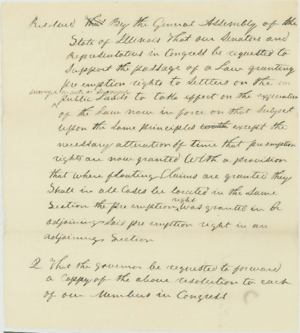 Resolved By the General Assembly of the
State of Illinois that our Senators and
Representatives in Congress be requested to
Support the passage of a Law granting
pre emption rights to Settlers on the
public Lands to take effect on the expiration
of the Law now in force on that Subject
upon the Same principles except the
necessary alteration of time that pre emption
rights are now granted With a provision
that where floating Claims are granted they
Shall in all Cases be located in the Same
Section the pre emption right was granted in or
adjoining Said pre emption right in an
adjoining Section
2 That the governor be requested to forward
a Coppy of the above resolution to each
of our Members in Congress